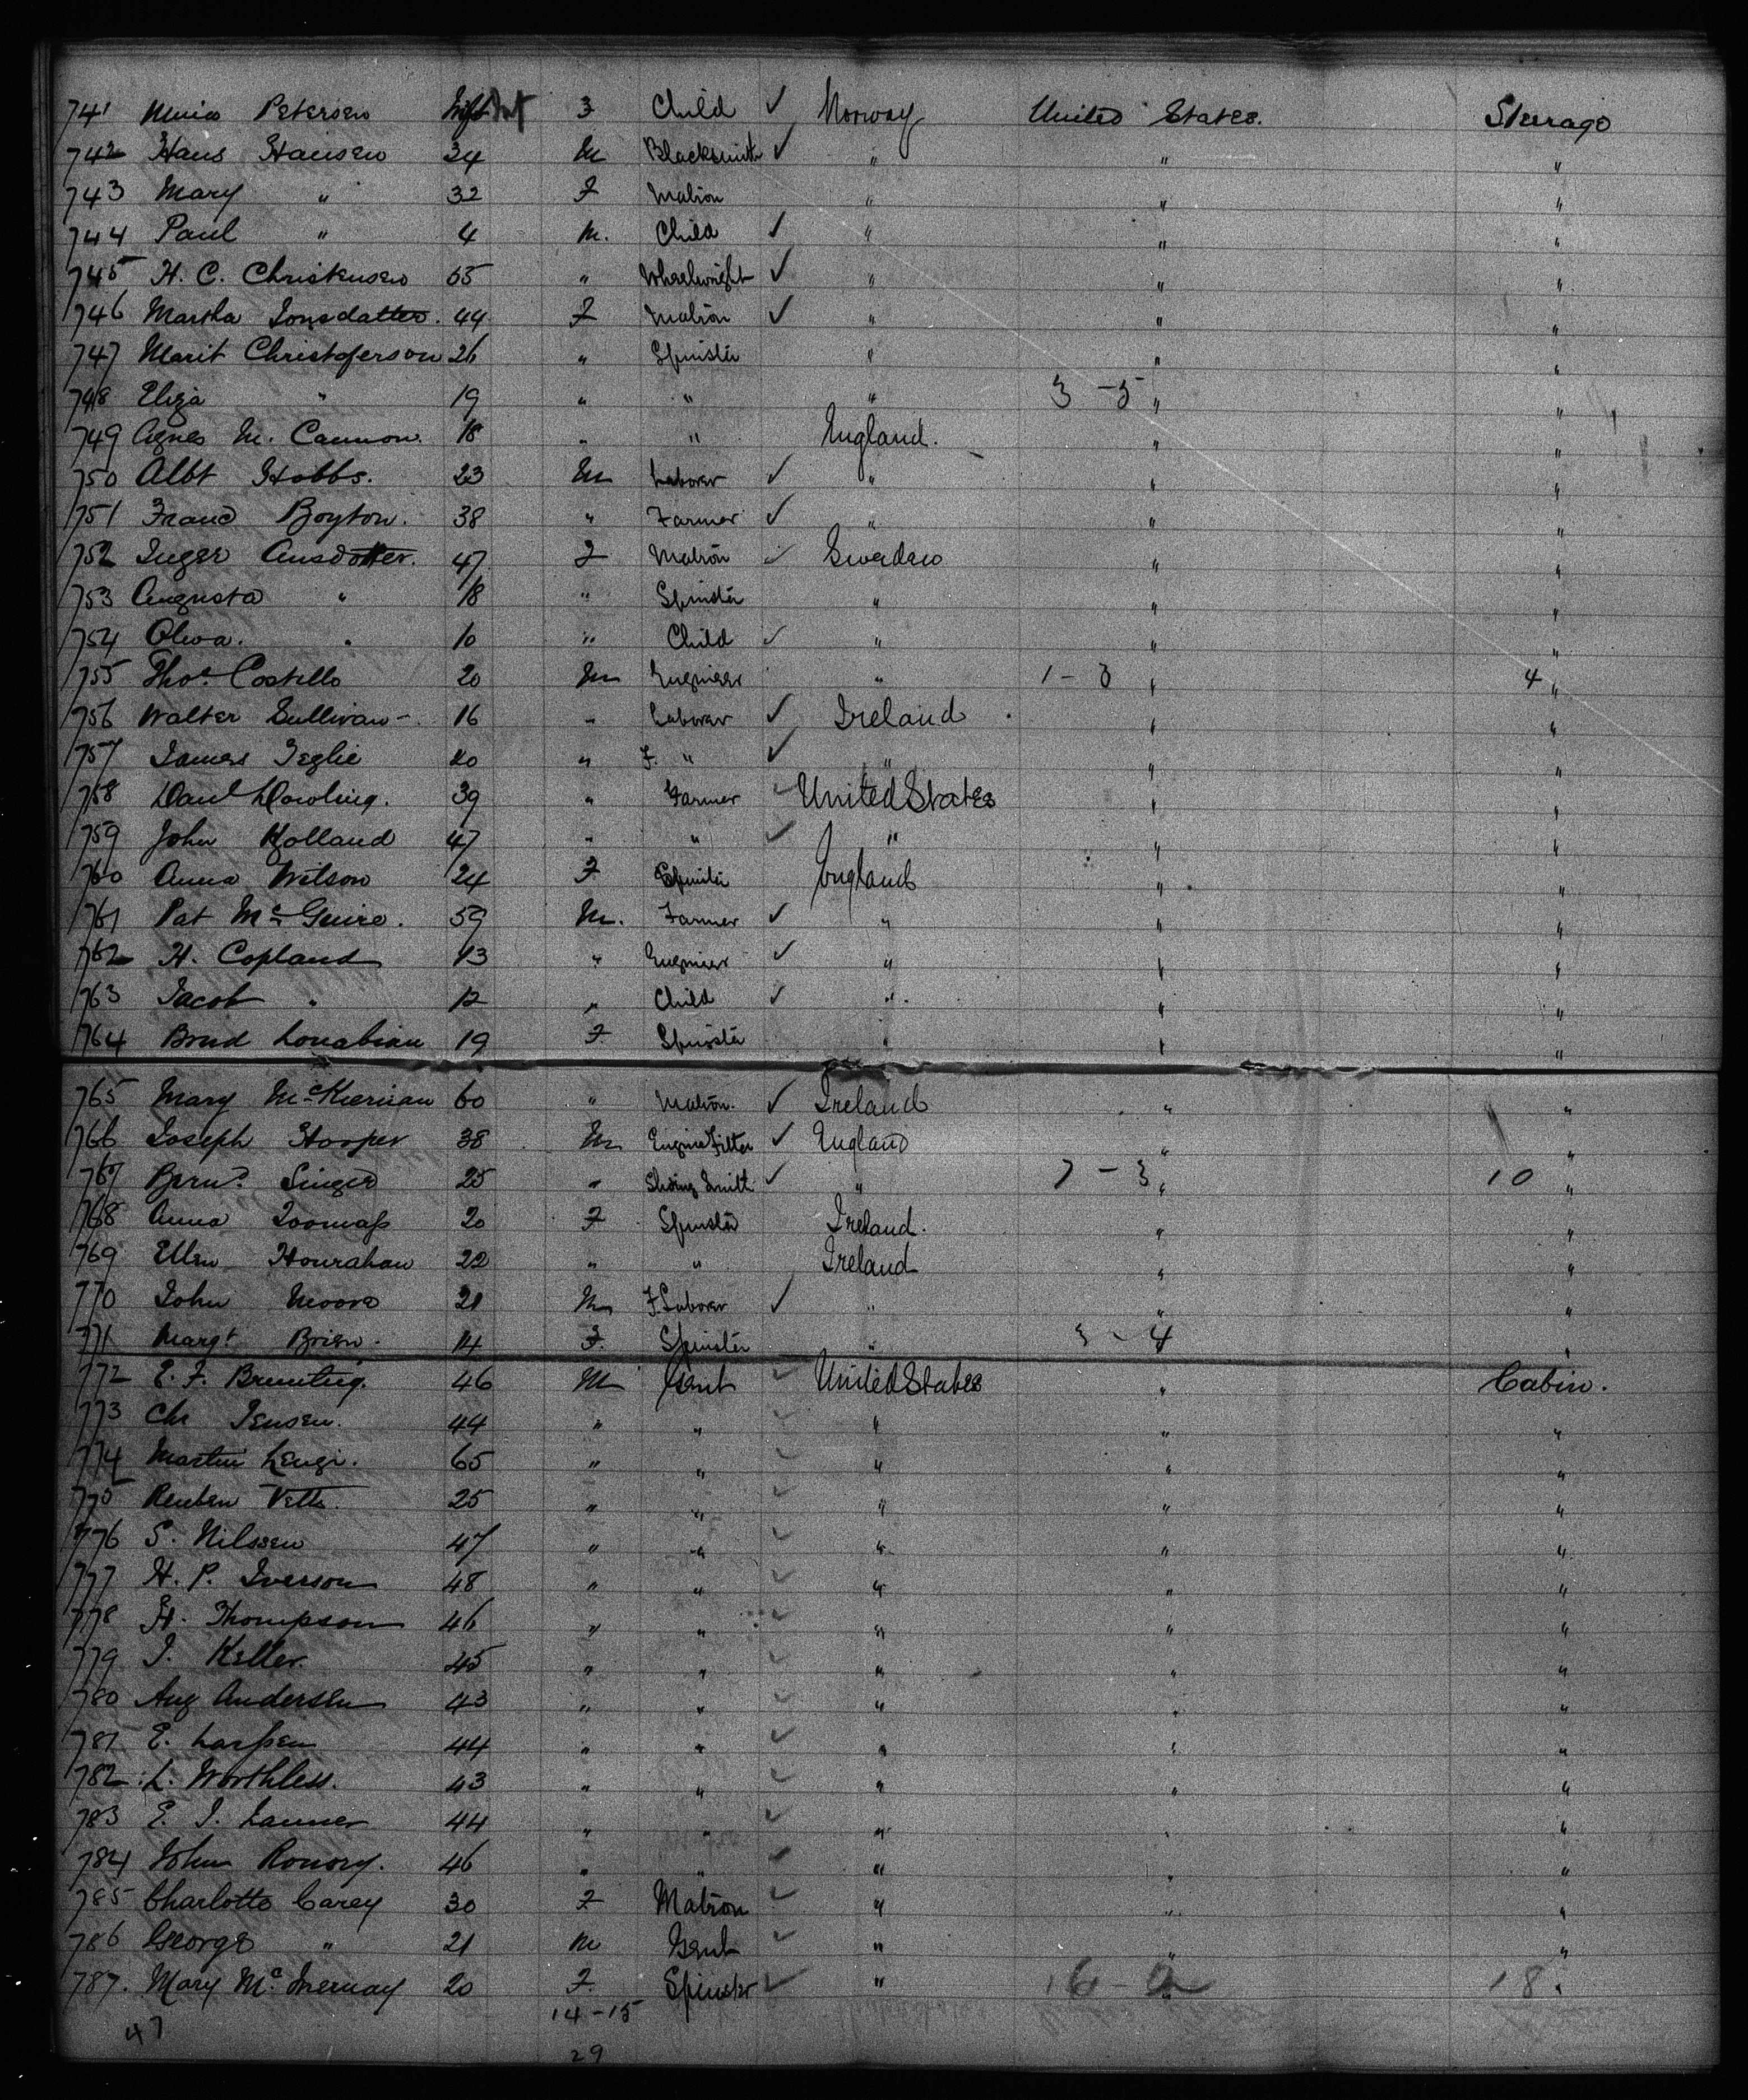 741 Petersen Inft F Child ✓ Norway United States. Steerage
742 Hans Hansen 34 M Blacksmith ✓ " " "
743 Mary " 32 F Matron " " "
744 Paul " 4 M. Child ✓ " " "
745 H. C. Christensen 55 " Wheelwright ✓ " " "
746 Martha Jonsdatter. 44 F Matron ✓ " " "
747 Marit Christoferson 26 " Spinster " " "
748 Eliza " 19 " " " 3 - 5 " "
749 Agnes M. Cannon. 18 " " England. " "
750 Albt Hobbs. 23 M Laborer ✓ " " "
751 Boyton. 38 " Farmer ✓ " " "
752 Inger 47 F Matron ✓ Sweden " "
753 Augusta " 18 " Spinster " " "
754 " 10 " Child ✓ " " "
755 Thos. Costello 20 M Engineer " 1 - 3 " 4 "
756 Walter Sullivan 16 " Laborer ✓ Ireland " "
757 James 20 " F. " ✓ " " "
758 Danl Dowling. 39 " Farmer ✓ United States " "
759 John Holland 47 " " ✓ " " "
760 Anna Wilson 24 F Spinster England " "
761 Pat McGuire. 59 M. Farmer ✓ " " "
762 H. Copland 43 " Engineer ✓ " " "
763 Jacob " 12 " Child ✓ " " "
764 19 F Spinster " " "
765 Mary McKiernan 60 " Matron. ✓ Ireland " "
766 Joseph Hooper 38 M Engine Fitter ✓ England " "
767 Bernd. Singer 25 " Smith ✓ " 7 - 3 " 10 "
768 Anna 20 F Spinster Ireland. " "
769 Ellen Hourahan 22 " " Ireland " "
770 John Moore 21 M F. Laborer ✓ " " "
771 Margt. Brien. 14 F. Spinster " 3 - 4 "
772 E. F. 46 M Gent ✓ United States " Cabin.
773 Chr Jensen. 44 " " ✓ " " "
774 Martin 65 " " ✓ " " "
775 Reuben 25 " " ✓ " " "
776 S. Nilssen 47 " " ✓ " " "
777 H. P. Iverson 48 " " ✓ " " "
778 H. Thompson 46 " " ✓ " " "
779 J. Keller. 45 " " ✓ " " "
780 Aug Andersen 43 " " ✓ " " "
781 E. Larssen 44 " " ✓ " " "
782 L. Worthless. 43 " " ✓ " " "
783 E. J. 44 " " ✓ " " "
784 John 46 " " ✓ " " "
785 Charlotte Carey 30 F Matron ✓ " " "
786 George " 21 M Gent ✓ " " "
787. Mary 20 F. Spinster ✓ " 16 - 2 18 "
14 - 15
47
29